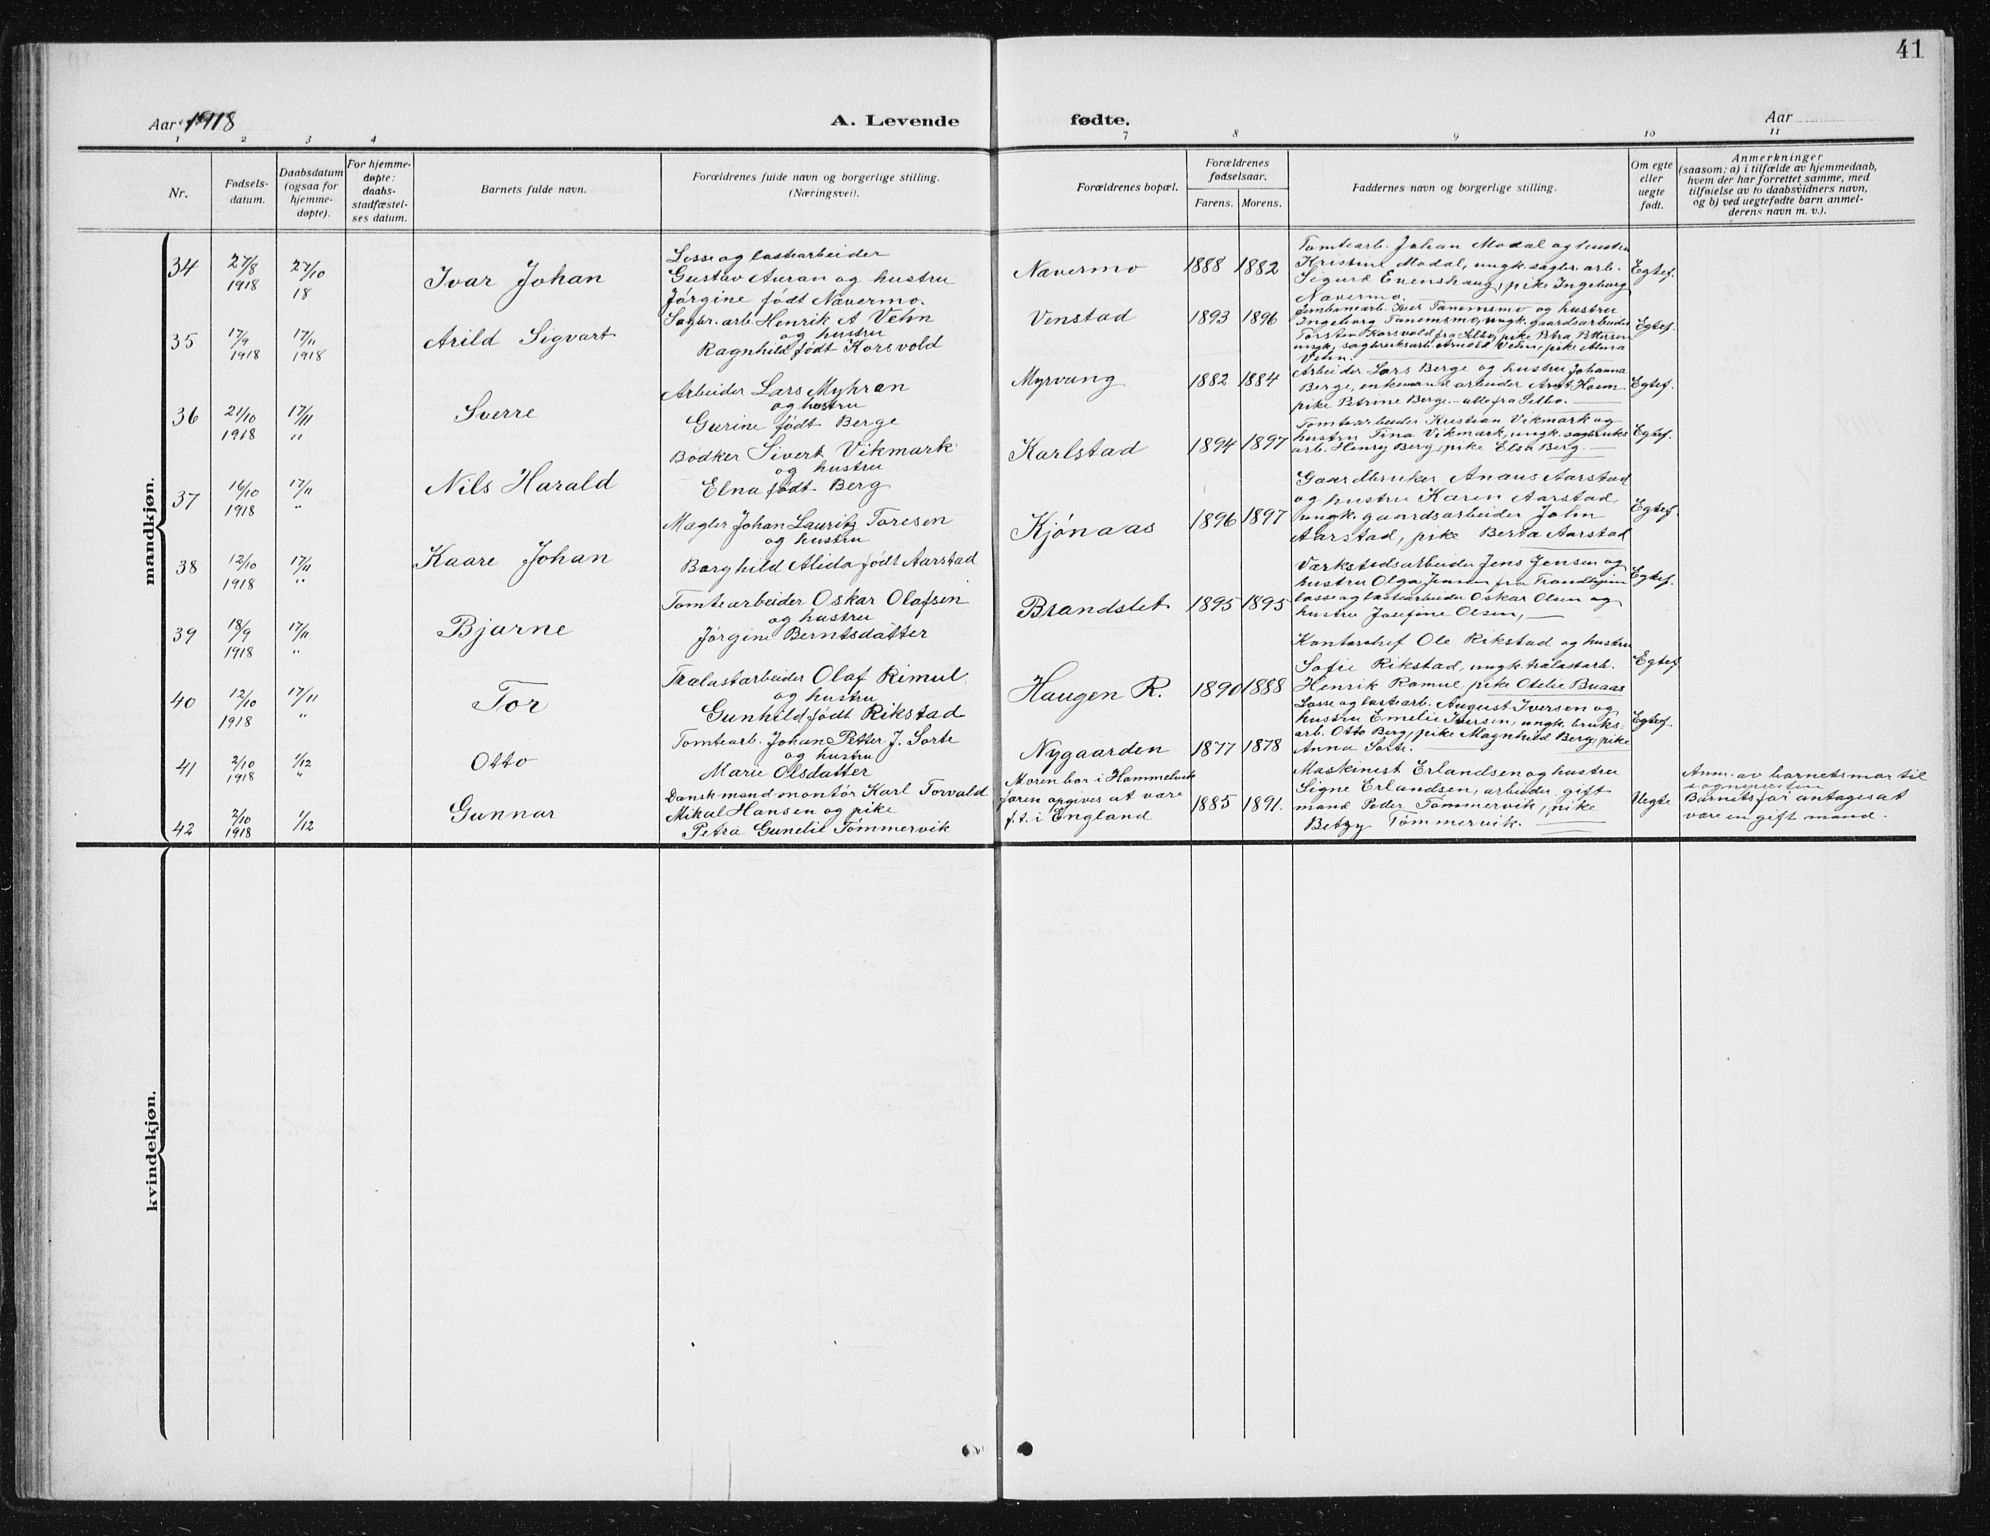 41
Aar 1918
A. Levende
fødte.
Aar
1 2 3 4 7 8 9 10 11
Nr.
Fødsels-
datum.
Daabsdatum
(ogsaa for
hjemme-
døpte).
For hjemme-
døpte:
daabs-
stadfæstel-
ses datum.
Barnets fulde navn.
Forældrenes fulde navn og borgerlige stilling.
(Næringsvei).
Forældrenes bopæl.
Forældrenes
fødselsaar.
Farens. Morens.
Faddernes navn og borgerlige stilling.
Om egte
eller
uegte
født.
Anmerkninger
(saasom: a) i tilfælde av hjemmedaab,
hvem der har forrettet samme, med
tilføielse av to daabsvidners navn,
og b) ved uegtefødte barn anmel-
derens navn m. v.).
mandkjøn.
34
27/8
1918
27/10
18
Ivar Johan
Losse og lastearbeider
Gustav Auran og hustru
Jørgine født Nævermo.
Nævermo
1888 1882
Tomtearb. Johan Modal og hustru
Kristine Modal, ungk. sagbr. arb.
Sigurd Evenshaug, pike Ingeborg
Nævermo.
Egtef.
35
17/9
1918
17/11
1918
Arild Sigvart
Sagbr. arb. Henrik A Vehn
og hustru
Ragnhild født Korsvold
Venstad
1893 1896
Jernbanearb. Iver Tanemsmo og hustru
Ingeborg Tanemsmo, ungk. gaardsarbeider
Torsten Korsvold fra Selbo, pike Petra Pettersen
ungk. sagbruksarb. Arnold Vehn, pike Alma
Vehn.
Egtef.
36
21/10
1918
17/11
"
Sverre
Arbeider Lars Myhran
og hustru
Gurine født Berge
Myrvang
1882 1884
Arbeider Lars Berge og hustru Johanna
Berge, enkemand arbeider Arnt Moen
pike Petrine Berge - alle fra Selbo.
Egtef.
37
16/10
1918
17/11
"
Nils Harald
Bødker Sivert Vikmark
og hustru
Elna født Berg
Karlstad
1894 1897
Tomtearbeider Kristian Vikmark og
hustru Tina Vikmark, ungk. sagbruks
arb. Henry Berg, pike Elsa Berg.
Egtef.
38
12/10
1918
17/11
"
Kaare Johan
Mægler Johan Lauritz Toresen
og hustru
Borghild Alida født Aarstad
Kjønaas
1896 1897
Gaardbruker Anaus Aarstad
og hustru Karen Aarstad,
ungk. gaardsarbeider John
Aarstad, pike Berta Aarstad
Egtef.
39
18/9
1918
17/11
"
Bjarne
Tomtearbeider Oskar Olafsen
og hustru
Jørgine Berntsdatter
Brandslet
1895 1895
Værkstedsarbeider Jens Jensen og
hustru Olga Jensen fra Trondhjem
losse og lastearbeider Oskar Olsen og
hustru Josefine Olsen,
Egtef.
40
12/10
1918
17/11
"
Tor
Trælastarbeider Olaf Rimul
og hustru
Gunhild født Rikstad
Haugen R.
1890 1888
Kontorchef Ole Rikstad og hustru
Sofie Rikstad, ungk. trælastarb.
Henrik Ramul pike Otelie Buaas
Egtef.
41
2/10
1918
1/12
"
Otto
Tomtearb. Johan Petter J. Sorte
og hustru
Marie Olsdatter
Nygaarden
1877 1878
Losse og lastearb. August Iversen og
hustru Emelie Iversen, ungk. bruks.
arb. Otto Berg, pike Magnhild Berg, pike
Anna Sorte.
Egtef.
42
2/10
1918
1/12
Gunnar
Dansk mand montør Karl Torvald
Mikal Hansen og pike
Petra Gunelie Tømmervik
Moren bor i Hommelvik
faren opgives at være
f.t. i England
1885 1891.
Maskinist Erlandsen og hustru
Signe Erlandsen, arbeider gift
mand Peder Tømmervik, pike
Betzy Tømmervik.
Uegte
Anm. av barnets mor til
sognepresten
Barnets far antages at
være en gift mand.
kvindekjøn.